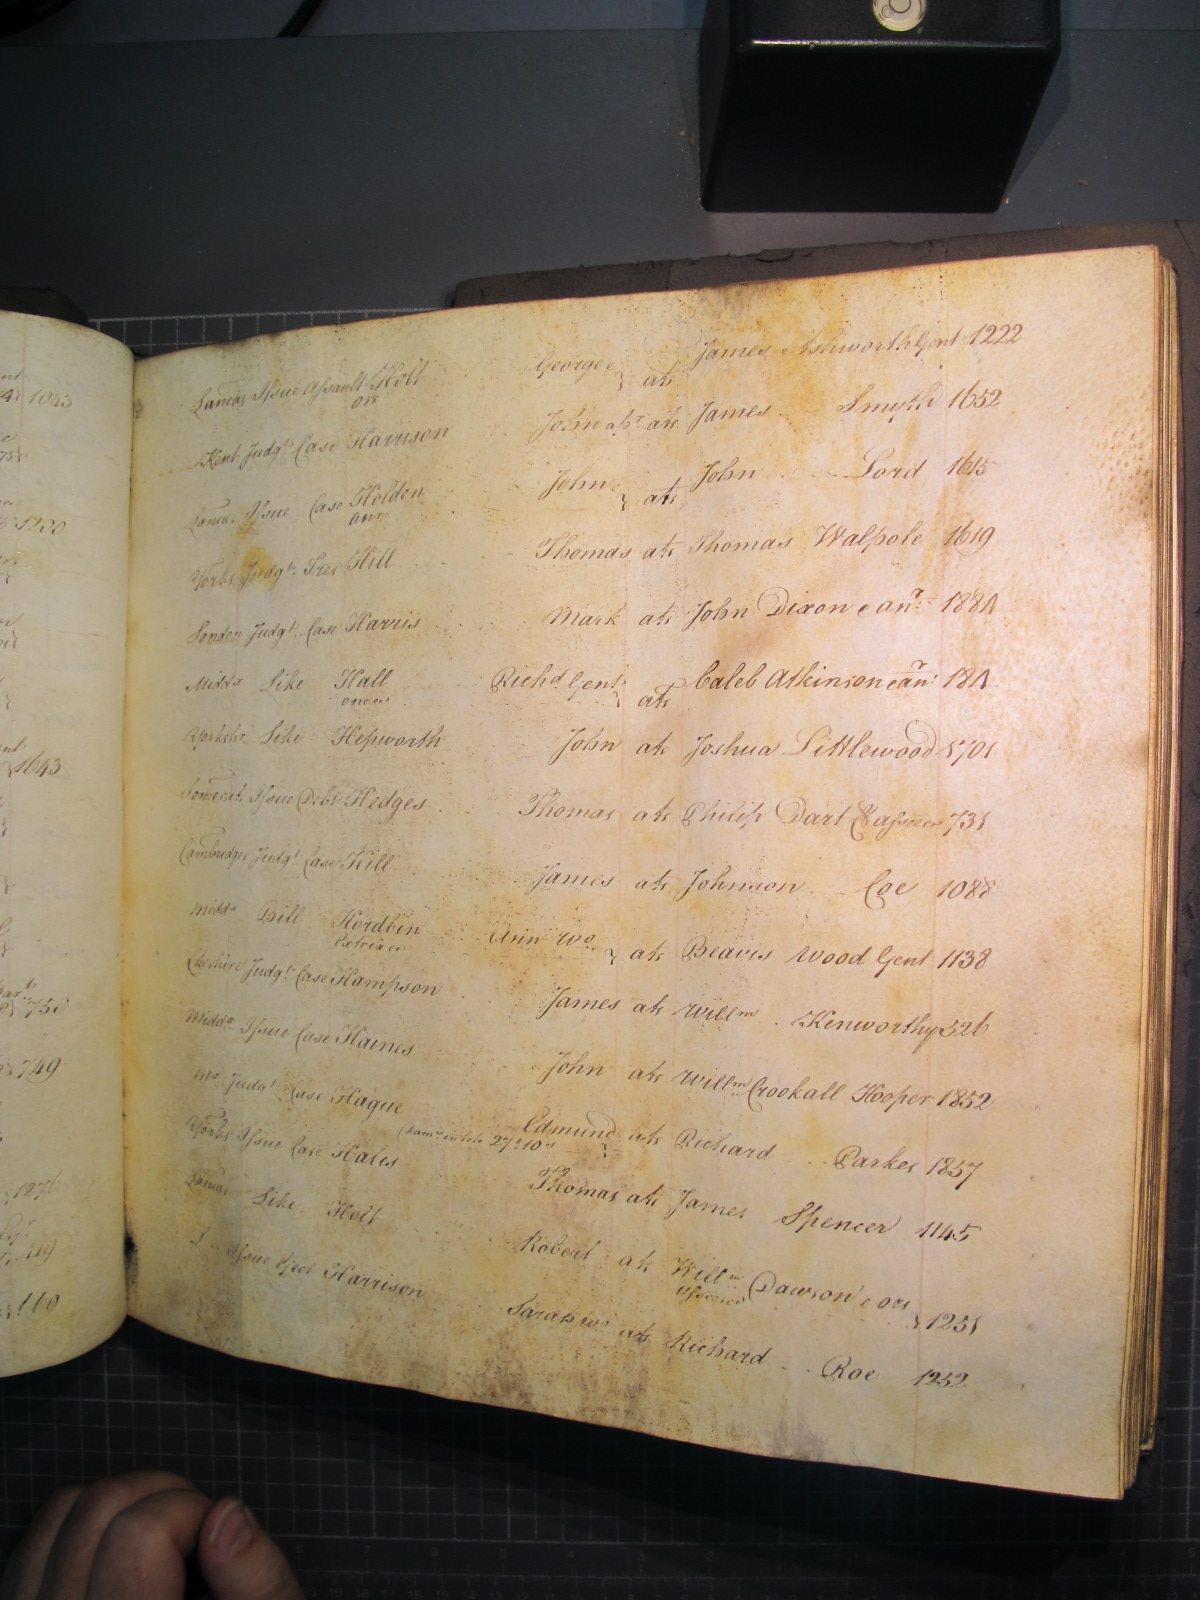 Lancas Issue Assault Holt George } ats James Ashworth Gent 1222
ors
Kent Judgt Case Harrison John ats James Smyth 1652
Lancas Issue Case Holden John } ats John Lord 1615
anr
Yorks Judgt Tres Hill Thomas ats Thomas Walpole 1619
London Judgt Case Harris Mark ats John Dixon & anr 1884
Middx Like Hall Richd Gent } ats Caleb Atkinson & anr 184
one &c
Yorkshr Like Hepworth John ats Joshua Littlewood 1701
Somersets Issue Debt Hedges Thomas ats Philip Dart & assee &c 731
Cambridges Judgt Case Hill James ats Johnson Coe 1088
Middx Bill Hordbin Ann Wo } ats Beavis Wood Gent 1138
Extrix &c
Cheshire Judgt Case Hampson James ats Willm Kenworthy 526
Middx Issue Case Haines John ats Willm Crookall Hooper 1852
Judgt Case Hague Edmund } ats Richard Parkes 1857
27 10
Yorks Issue Case Hales Thomas ats James Spencer 1145
Lancas Like Holt Robert ats Willm Dawson & ors } 1251
assees
Issue Eject Harrison Sarah Wo ats Richard Roe 1252
1043
1200
1643
751
749
1271
119
110